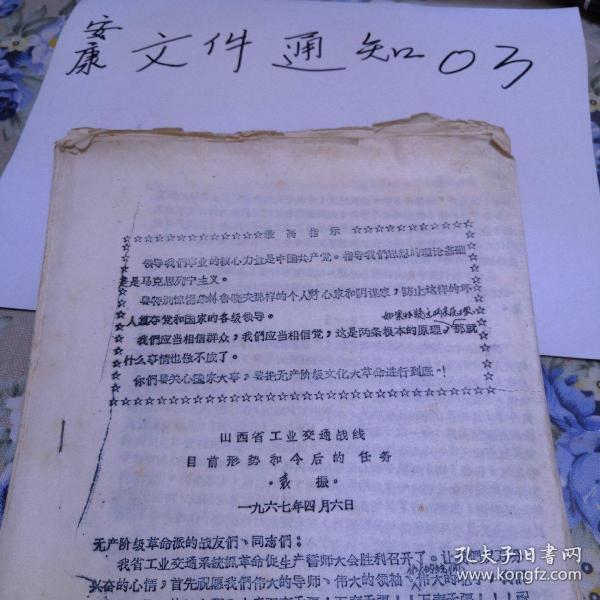 安康 文件通知03
☆☆☆☆☆☆☆☆☆☆☆☆☆最高指示☆☆☆☆☆☆☆☆☆☆☆
领导我们事业的核心力量是中国共产党。指导我们思想的理论基础
是马克思列宁主义。
要特别警惕象赫鲁晓夫那样的个人野心家和阴谋家，防止这样的坏
人篡夺党和国家的各级领导。
我们应当相信群众，我们应当相信党，这是两条根本的原理。那就
什么事情也做不成了。
你们要关心国家大事，要把无产阶级文化大革命进行到底！
山西省工业交通战线
目前形势和今后的任务
·袁振·
一九六七年四月六日
无产阶级革命派的战友们、同志们：
我省工业交通系统抓革命促生产誓师大会胜利召开了。让
兴奋的心情，首先祝愿我们伟大的导师、伟大的领袖、
孔夫子旧书网